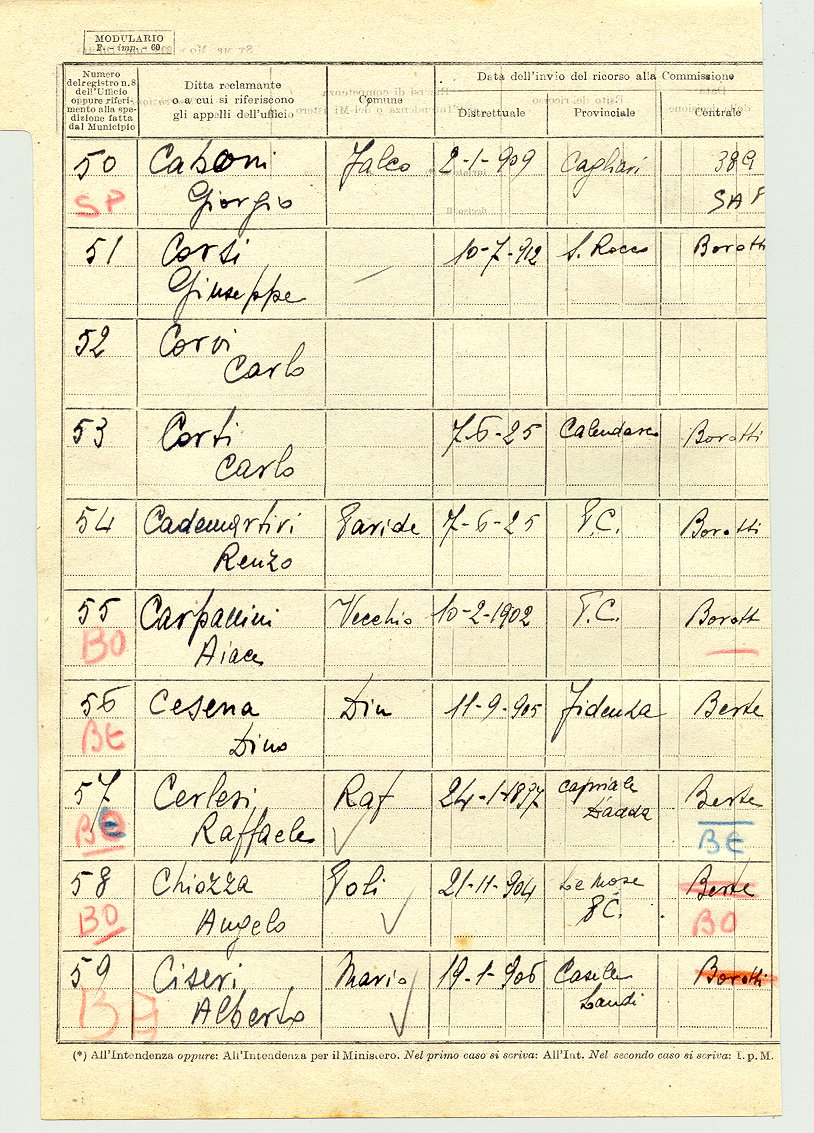 MODULARIO
F. - imp. - 60
Numero del registro n. 8 dell'Ufficio oppure riferimento alla spedizione fatta dal Municipio
Ditta reclamante o a cui si riferiscono gli appelli dell'ufficio
Comune
Data dell'invio del ricorso alla Commissione
Distrettuale
Provinciale
Centrale
50 Casoni Falco 2-1-909 Cagliari 389
SP Giorgio SAP
51 Corsi — 10-7-912 S. Rocco Borotti
Giuseppe
52 Corvi
Carlo
53 Corti 7-6-25 Calendasco Borotti
Carlo
54 Cademartiri Paride 7-6-25 P.C. Borotti
Renzo
55 Carpanini Vecchio 10-2-1902 P.C. Borotti
BO Aiace
56 Cesena Din 11-9-905 Fidenza Berte
BE Dino
57 Cerlesi Raf 24-1-1897 Capriate Berte
BE Raffaele D'adda BE
58 Chiozza Poli 21-11-904 Le Mose Berte
BO Angelo P.C. BO
59 Ciseri Mario 19-1-906 Casele Borotti
Alberto Landi
(*) All'Intendenza oppure: All'Intendenza per il Ministero. Nel primo caso si scriva: All'Int. Nel secondo caso si scriva: I. p. M.